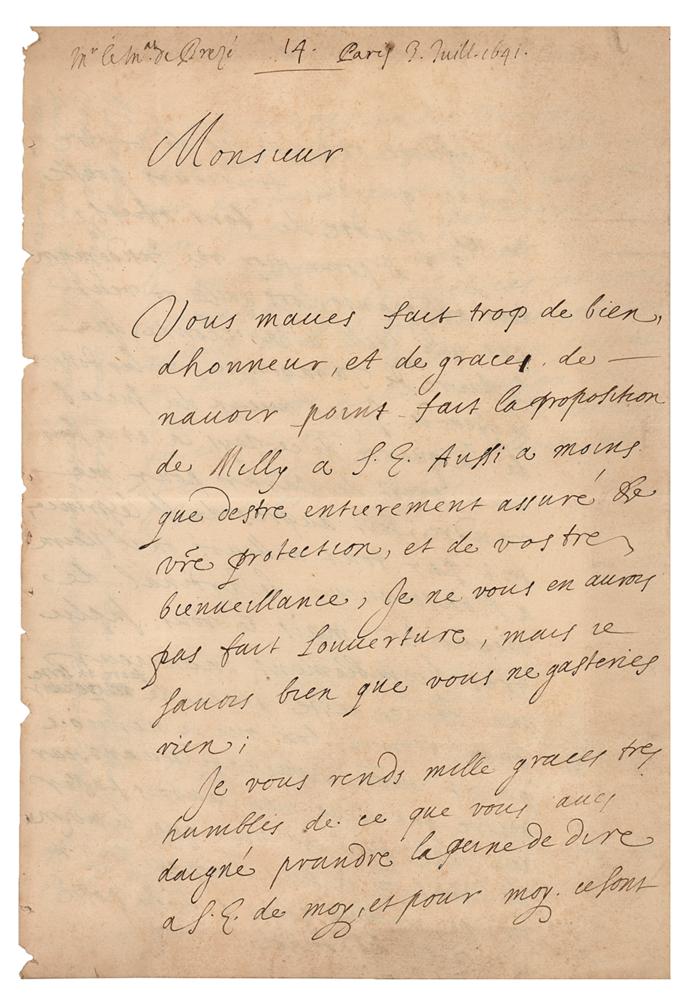 Mr le Mal de Brezé 14. Paris 3. Juill. 1641.
Monsieur
Vous maves fait trop de bien,
dhonneur, et de graces de —
navoir point fait la proposition
de Milly a S. E. Aussi a moins
que destre entierement assuré de
vre protection, et de vostre
bienveillance, Je ne vous en aurois
pas fait louverture, mais ie
savois bien que vous ne gasteries
rien;
Je vous rends mille graces tres
humbles de ce que vous aues
daigné prandre la peine de dire
a S. E. de moy, et pour moy. ce sont